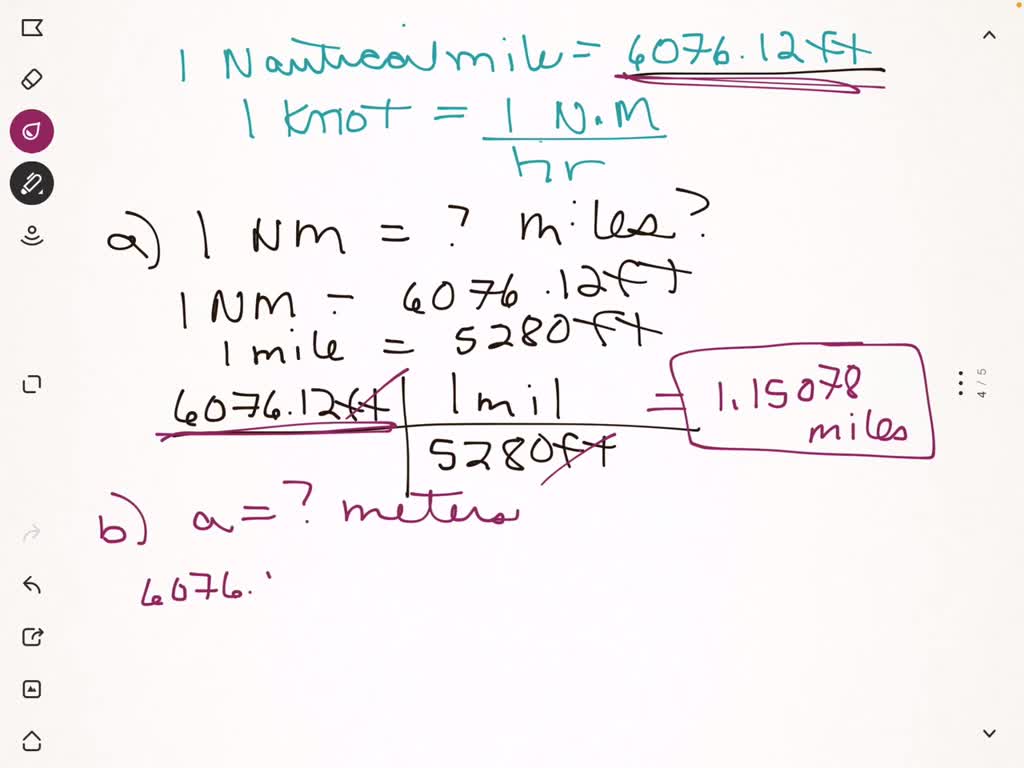 1 Nautical mile = 6076.12ft
1 knot = 1 N.M
hr
a) 1 NM = ? miles?
1 NM = 6076.12ft
1 mile = 5280ft
6076.12ft | 1 mil = 1.15078
5280ft miles
b) a = ? meters
6076.
4 / 5